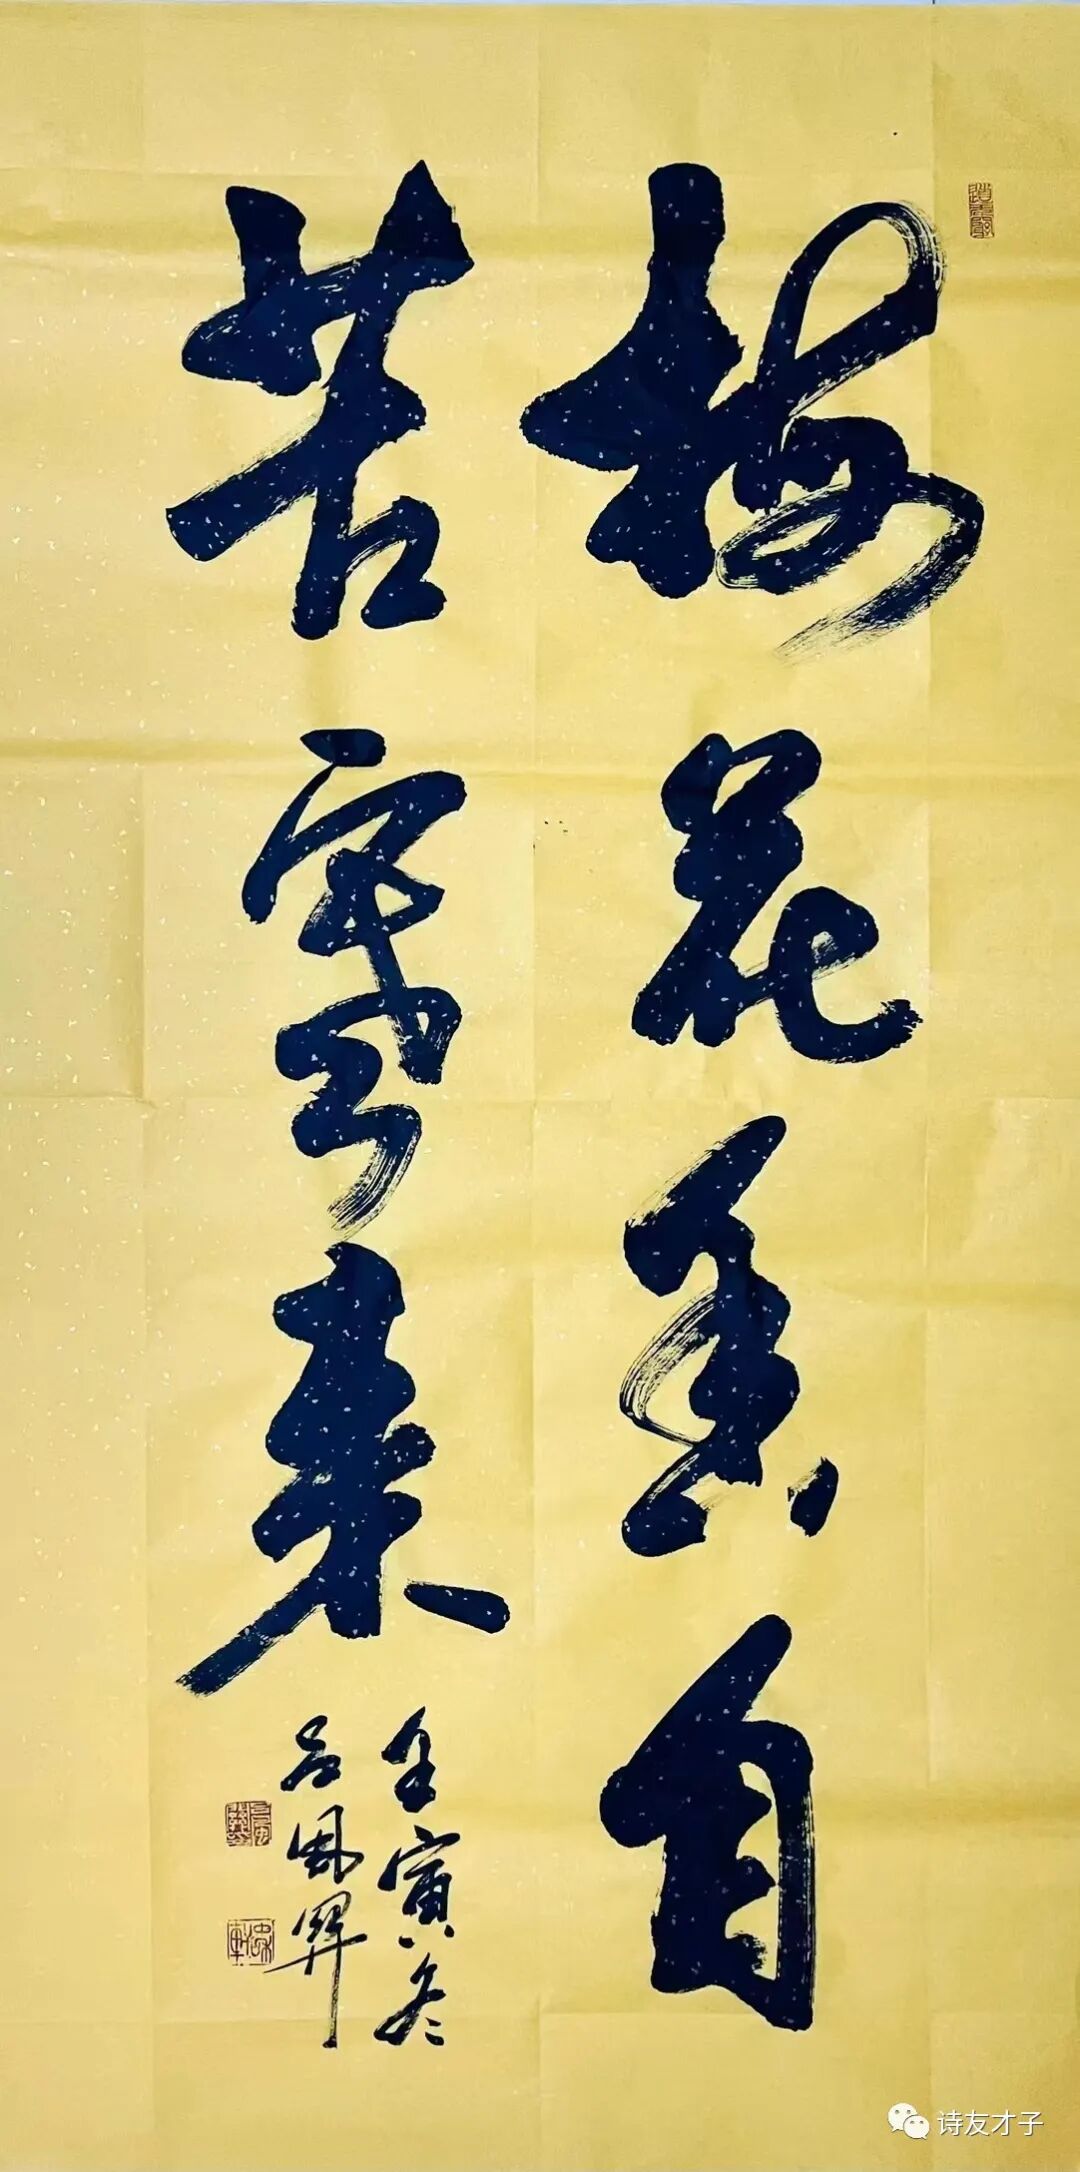 梅花香自
苦寒来
壬寅冬
吕
诗友才子